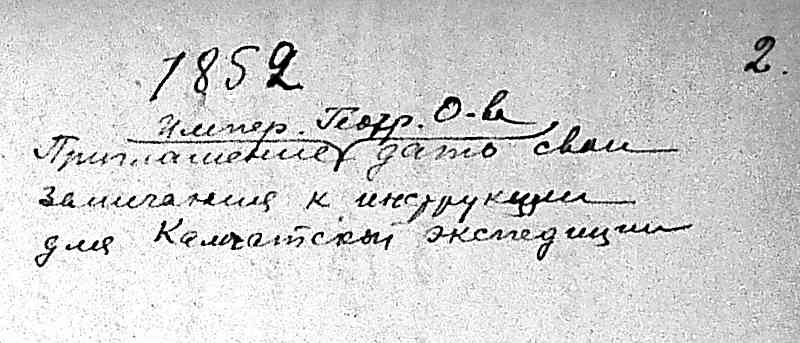 2.
1852
Импер. Геогр. О-ва
Приглашение дать свои
замечания к инструкции
для Камчатской экспедиции